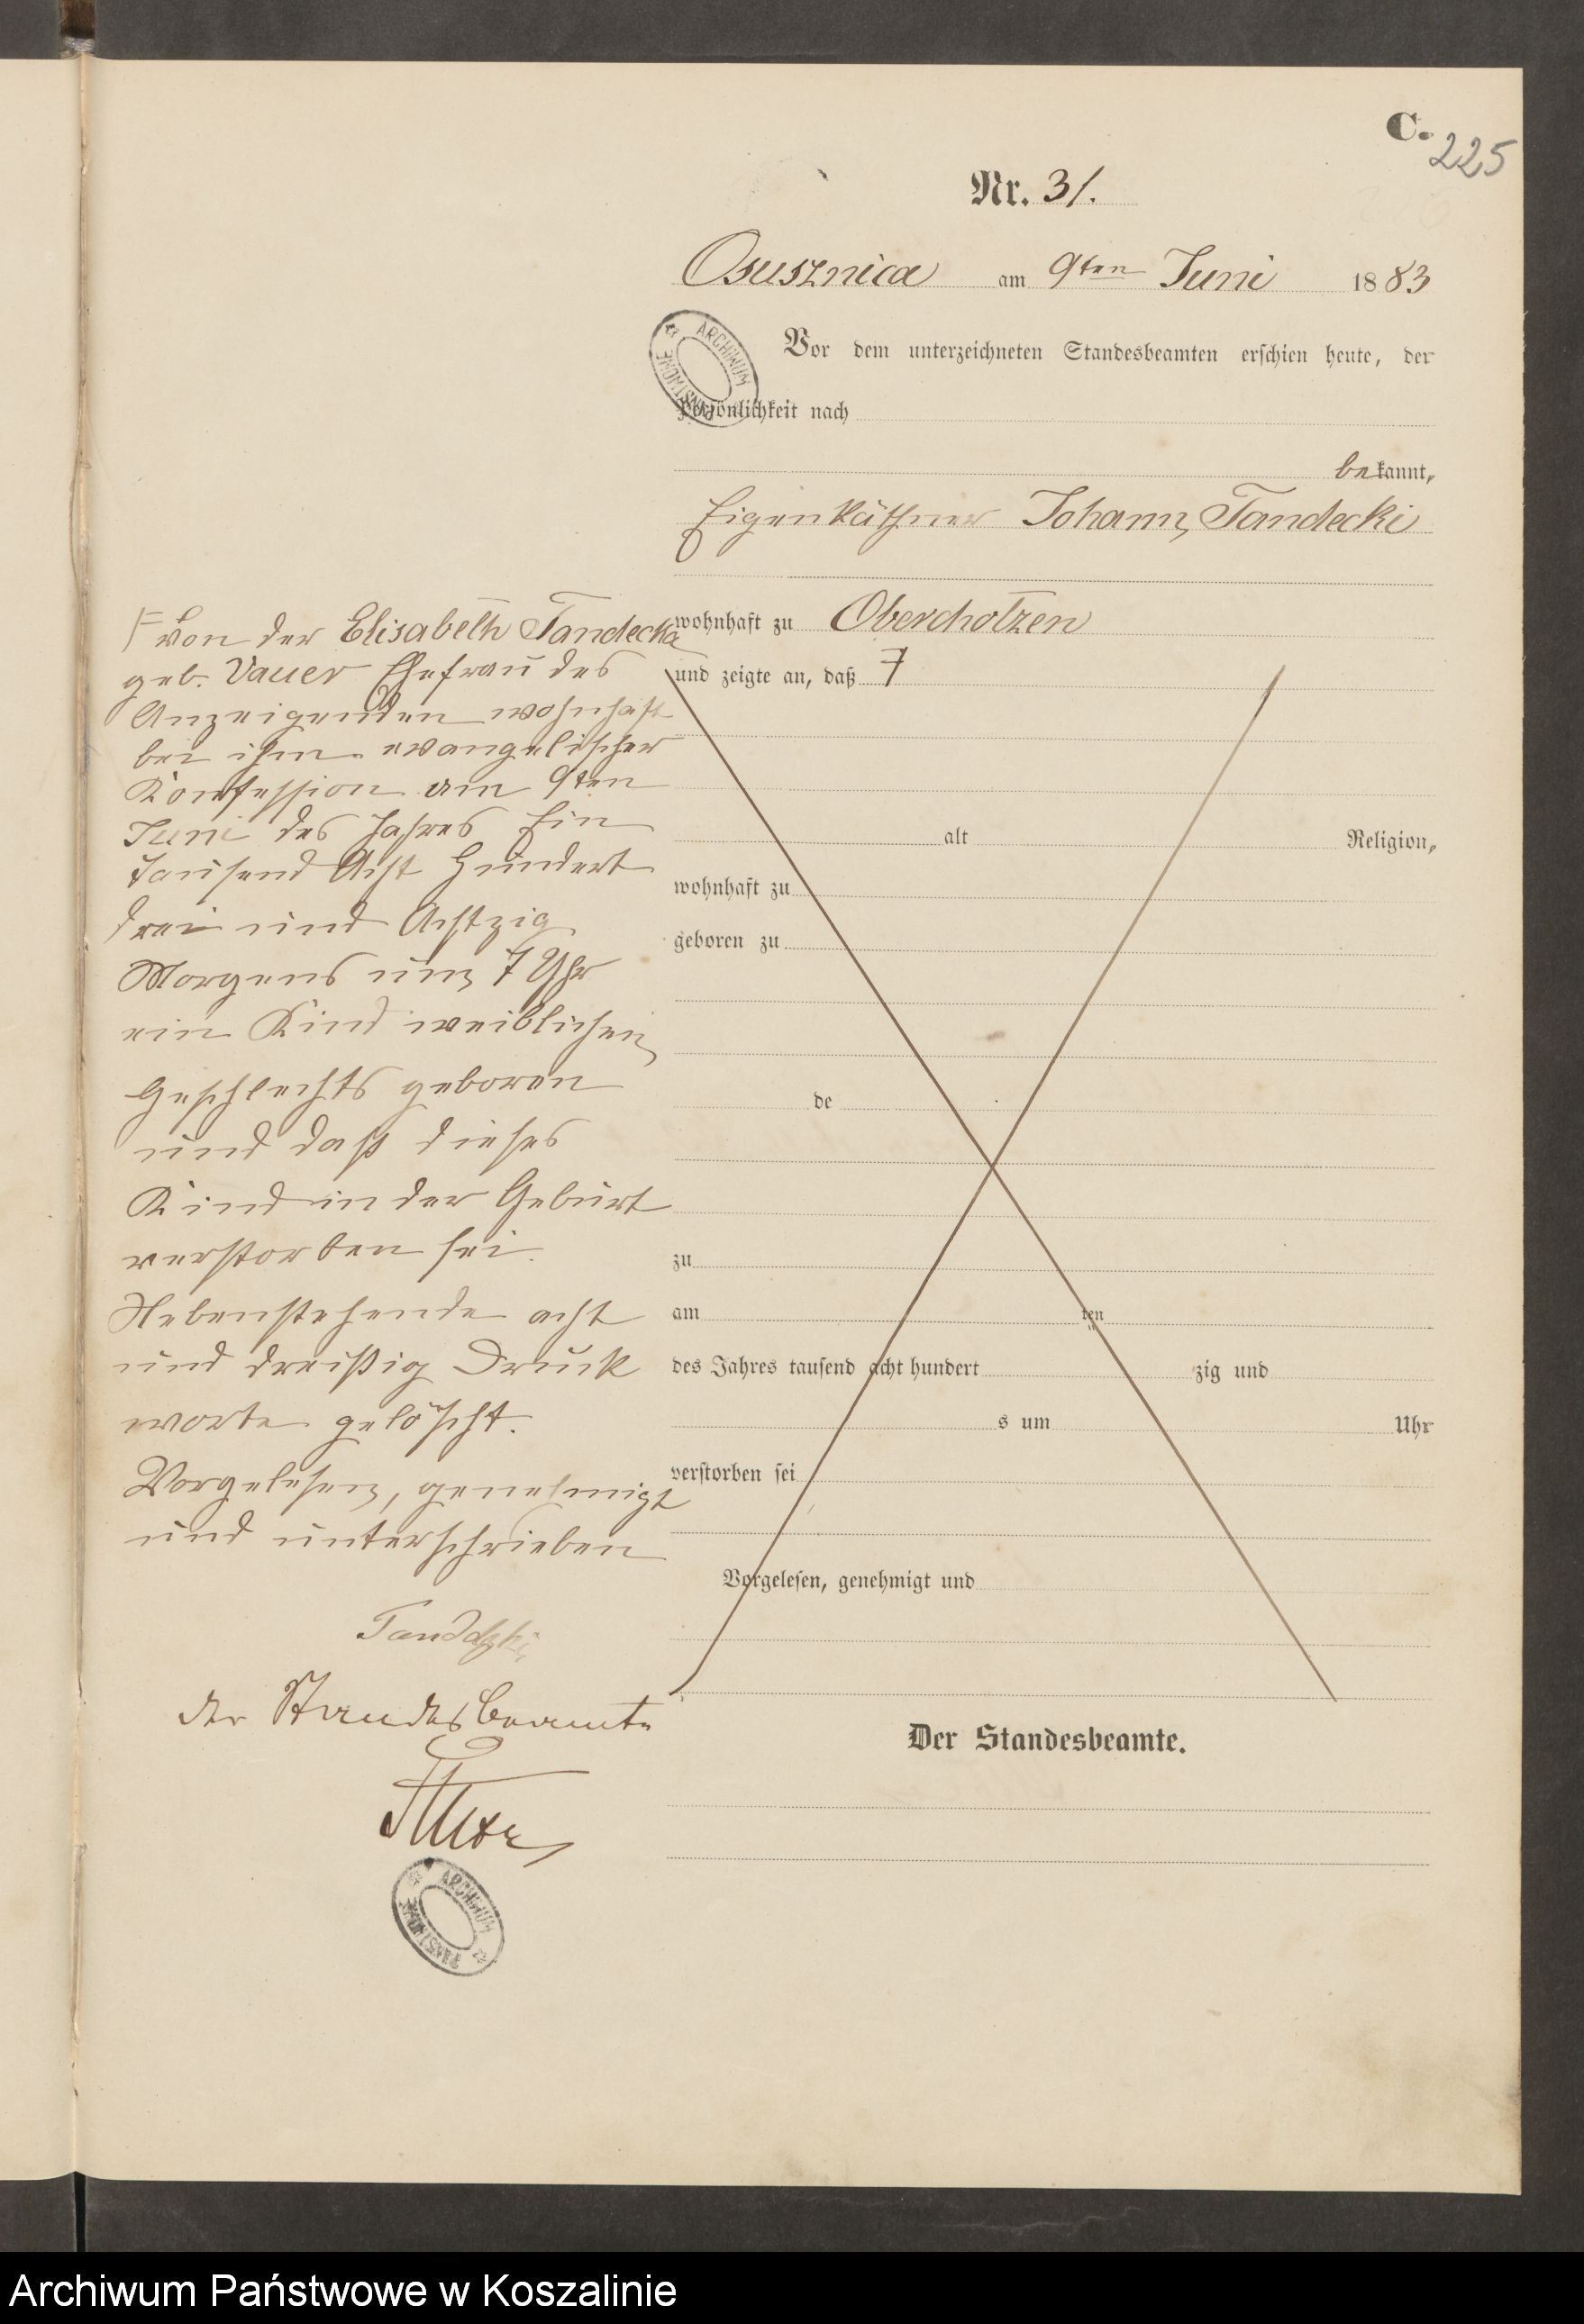 C.
225
Nr. 31.
Osusznica am 9ten Juni 1883
Vor dem unterzeichneten Standesbeamten erschien heute, der
Persönlichkeit nach
bekannt,
Eigenkäthner Johann Tandecki
wohnhaft zu Oberchotzen
und zeigte an, daß F
F von der Elisabeth Tandecka
geb. Vauer Ehefrau des
Anzeigenden wohnhaft
bei ihm evangelischer
Konfession am 9ten
Juni des Jahres Ein
Tausend Acht Hundert
drei und Achtzig
Morgens um 7 Uhr
ein Kind weiblichen
Geschlechts geboren
und daß dieses
Kind in der Geburt
verstorben sei.
Nebenstehende acht
und dreißig Druck
worte gelöscht.
Vorgelesen, genehmigt
und unterschrieben
der Standesbeamte
alt Religion,
wohnhaft zu
geboren zu
de
zu
am ten
des Jahres tausend acht hundert zig und
s um Uhr
verstorben sei
Vorgelesen, genehmigt und
Der Standesbeamte.
ARCHIWUM PAŃSTWOWE
ARCHIWUM PAŃSTWOWE
Archiwum Państwowe w Koszalinie